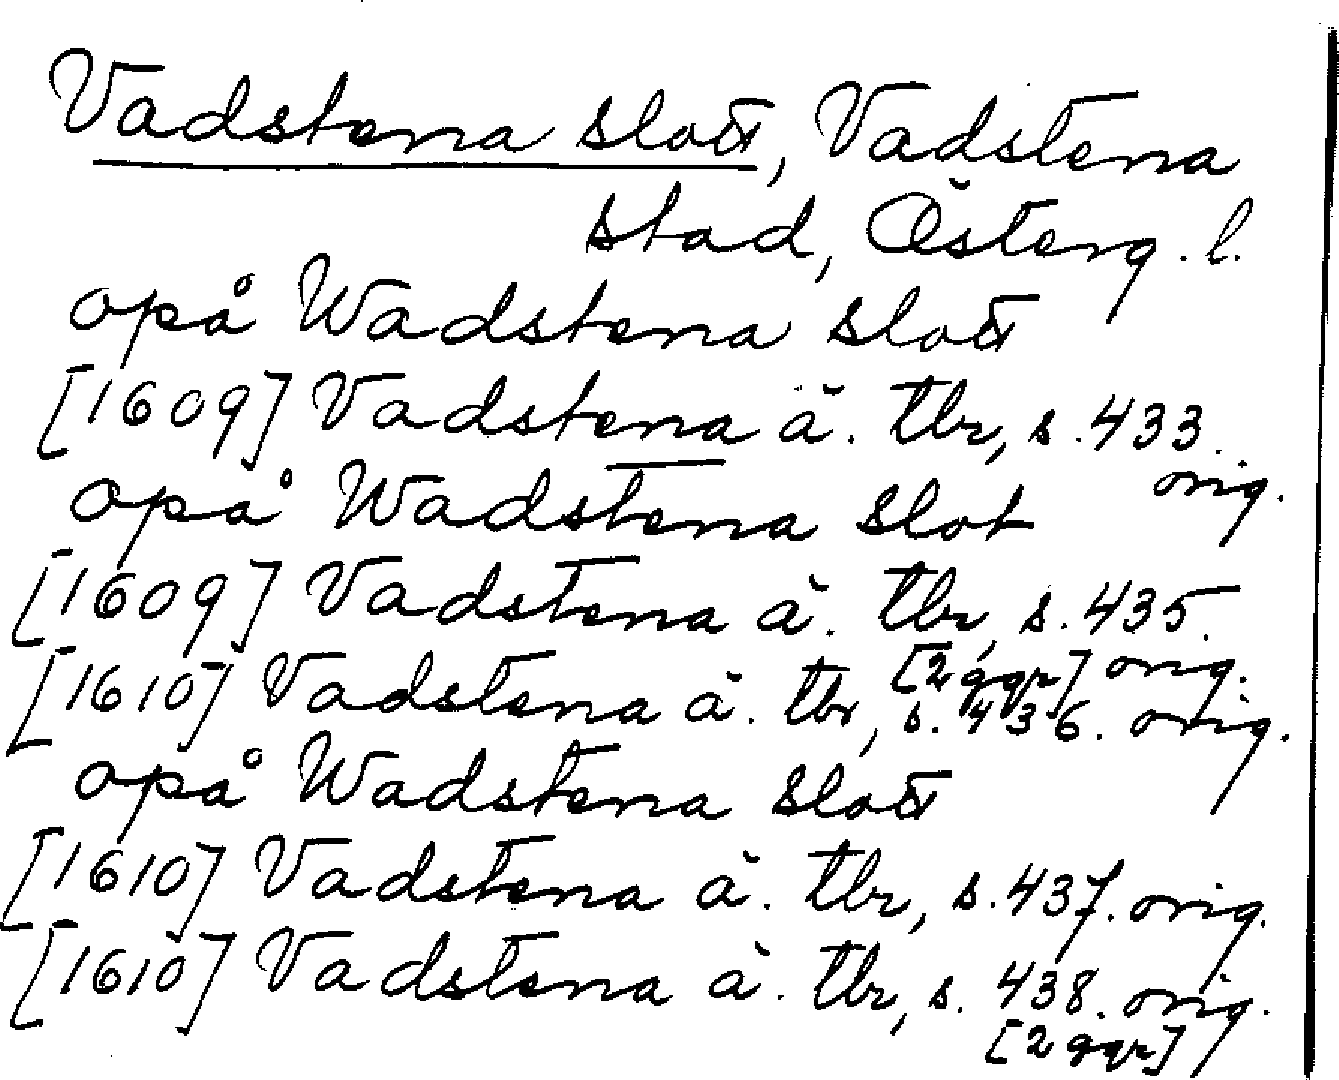 Vadstena slott, Vadstena
stad, Österg. l.
opå Wadstena slott
[1609] Vadstena ä. tbr, s. 433.
orig.
opå Wadstena slot
[1609] Vadstena ä. tbr, s. 435.
[2 ggr] orig.
[1610] Vadstena ä. tbr, s. 436. orig.
opå Wadstena slott
[1610] Vadstena ä. tbr, s. 437. orig.
[1610] Vadstena ä. tbr, s. 438. orig.
[2 ggr]